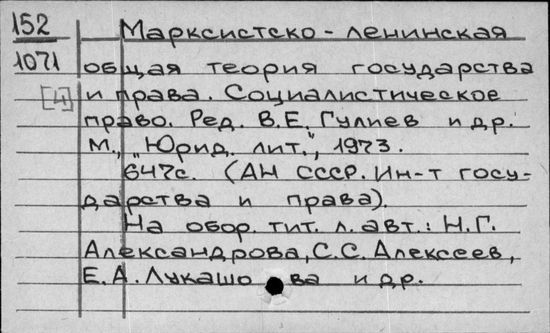 152 Марксистско-ленинская
1071 общая теория государства
[4] и права. Социалистическое
право. Ред. В.Е. Гулиев и др.
М., "Юрид. лит.", 1973.
647с. (АН СССР. Ин-т госу-
дарства и права).
На обор. тит. л. авт.: Н.Г.
Александрова, С.С. Алексеев,
Е.А. Лукашова и др.